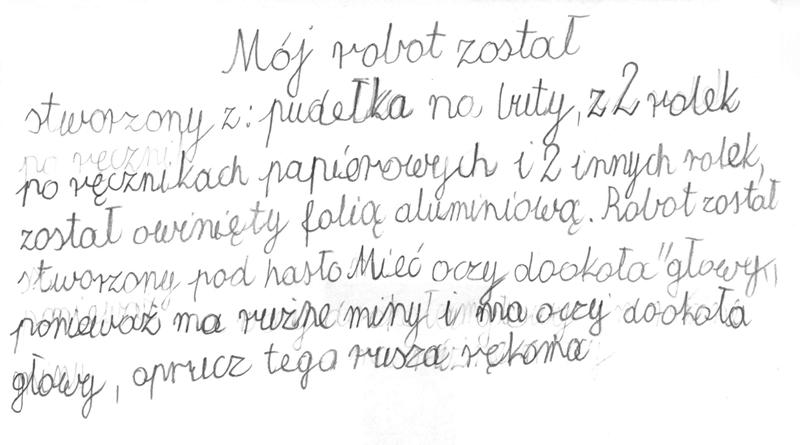 Mój robot został
stworzony z: pudełka na buty, z 2 rolek
po ręcznikach papierowych i 2 innych rolek,
został owinięty folią aluminiową. Robot został
stworzony pod hasło Mieć oczy dookoła "głowy",
ponieważ ma ruzne miny i ma oczy dookoła
głowy, oprucz tego rusza rękoma